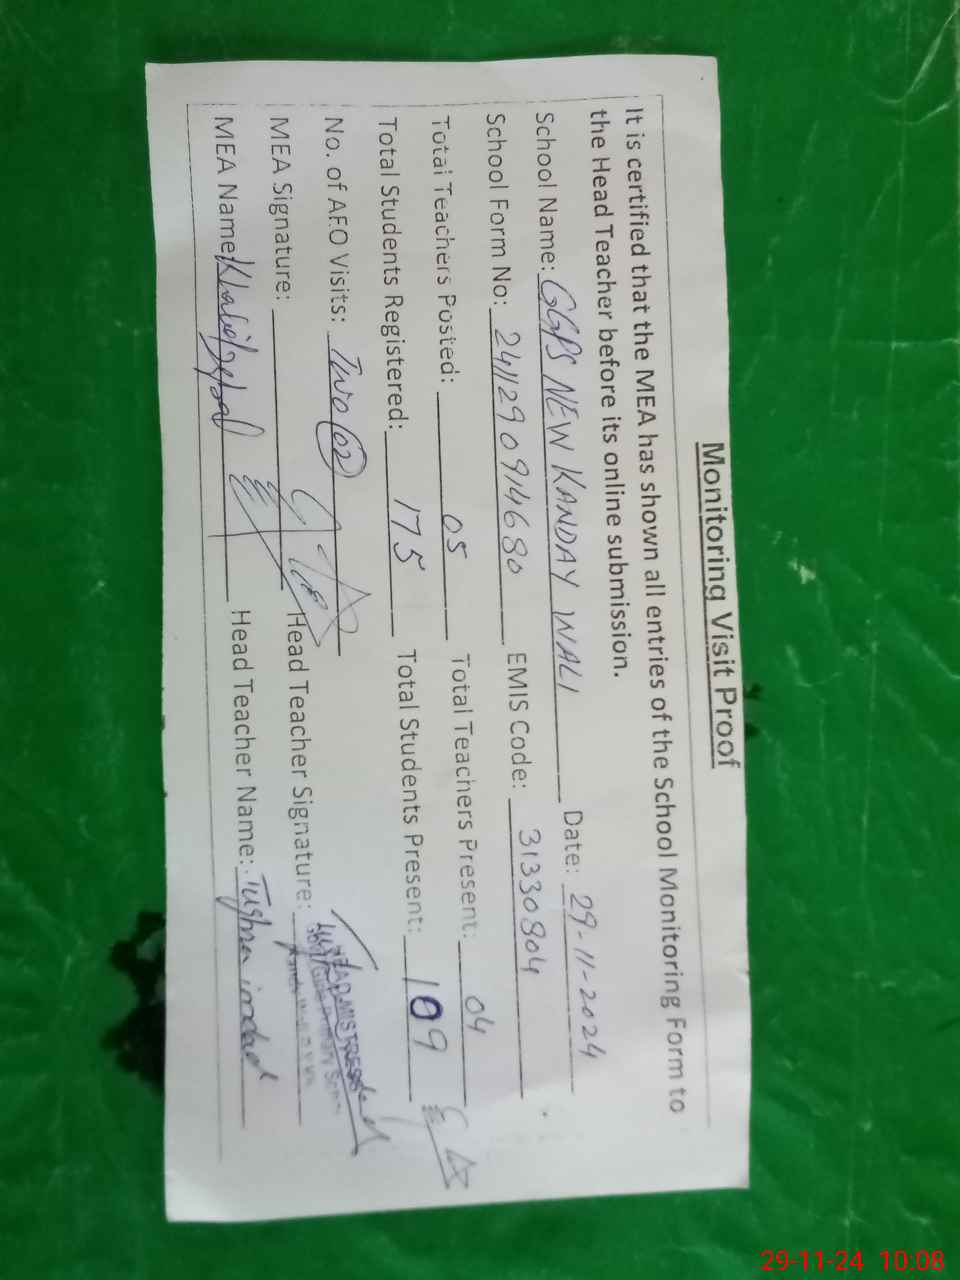 Monitoring Visit Proof
It is certified that the MEA has shown all entries of the School Monitoring Form to
the Head Teacher before its online submission.
School Name: GGPS NEW KANDAY WALI Date: 29-11-2024
School Form No: 241129 0914680 EMIS Code: 31330804
Total Teachers Posted: 05 Total Teachers Present: 04
Total Students Registered: 175 Total Students Present: 109
No. of AEO Visits: Two (02)
MEA Signature: Head Teacher Signature:
HEADMISTRESS
MEA Name: Head Teacher Name:
29-11-24 10:08